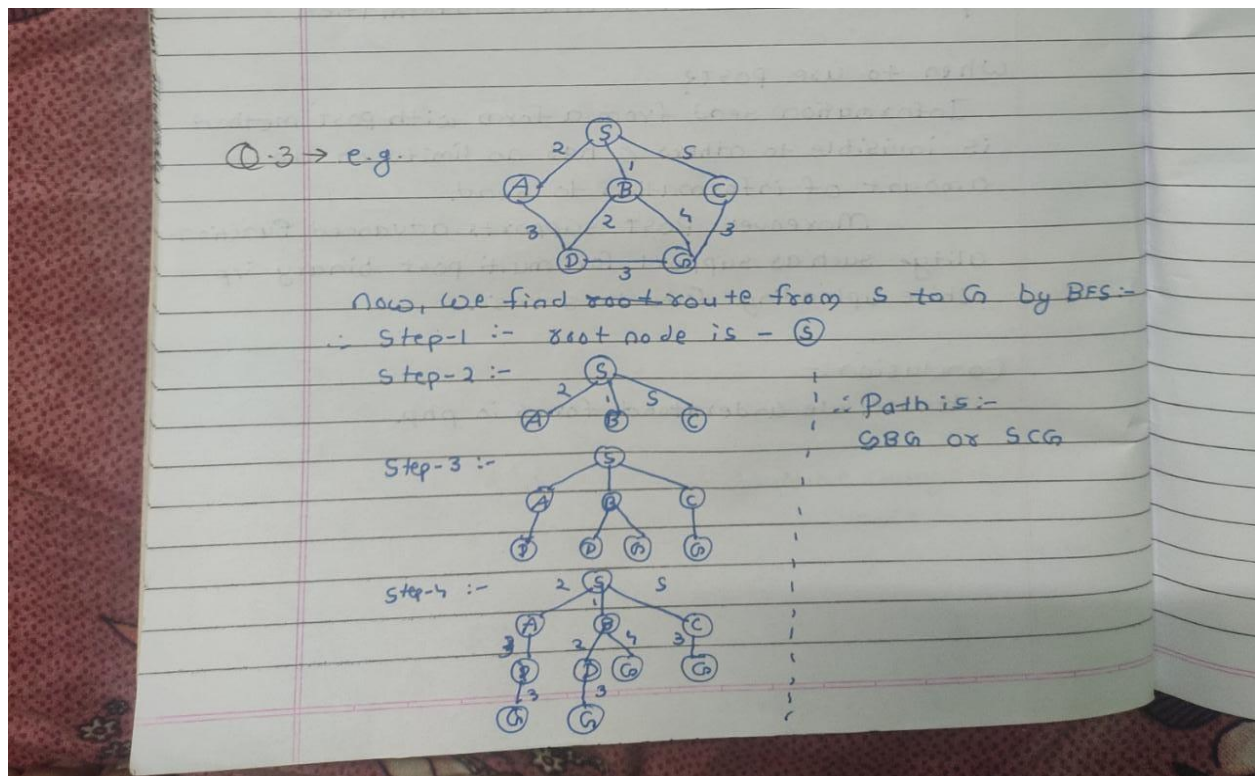 Q.3 → e.g.
S
2 1 5
A B C
3 2 4 3
D G
3
now, we find root route from S to G by BFS:-
∴ Step-1 :- root node is - S
Step-2 :- S
2 1 5
A B C
∴ Path is:-
SBG or SCG
Step-3 :- S
A B C
D D G G
Step-4 :- 2 S 5
1
A B C
3 2 4 3
D D G G
3 3
G G